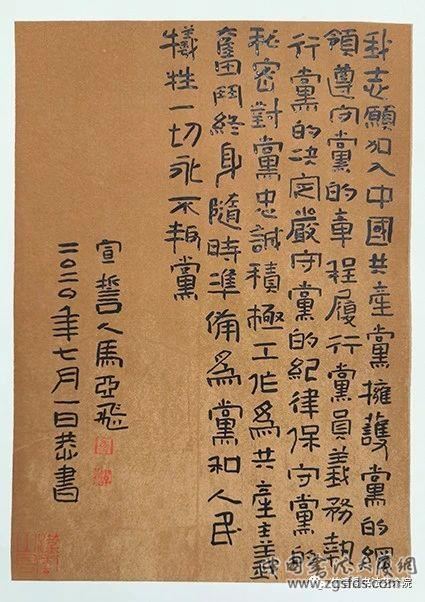 我志願加入中國共產黨擁護黨的綱
領遵守黨的章程履行黨員義務執
行黨的決定嚴守黨的紀律保守黨的
秘密對黨忠誠積極工作為共產主義
奮鬥終身隨時準備為黨和人民
犧牲一切永不叛黨
宣誓人馬亞飛
二〇二〇年七月一日恭書
中国書法大展網
www.zgsfds.com